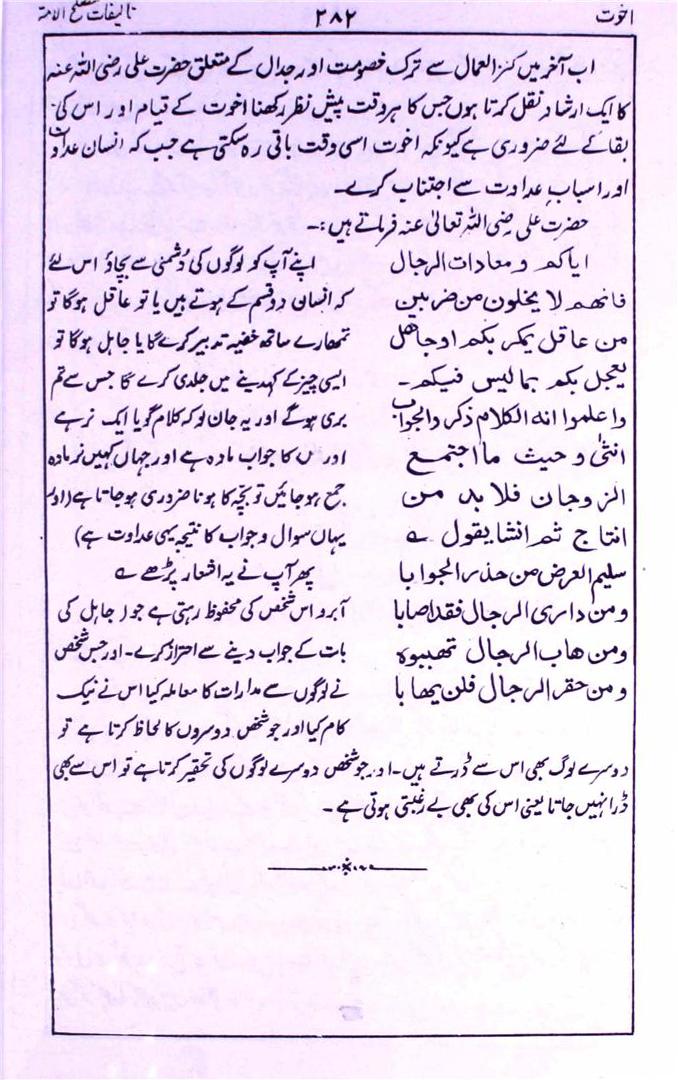 اخوت ۲۸۲ تالیفات مصلح الامۃ
اب آخر میں کنز العمال سے ترک خصومت اور جدال کے متعلق حضرت علی رضی اللہ عنہ
کا ایک ارشاد نقل کرتا ہوں جس کا ہر وقت پیش نظر رکھنا اخوت کے قیام اور اس کی
بقا کے لئے ضروری ہے کیونکہ اخوت اسی وقت باقی رہ سکتی ہے جب کہ انسان عداوت
اور اسباب عداوت سے اجتناب کرے۔
حضرت علی رضی اللہ تعالیٰ عنہ فرماتے ہیں:۔
ایاکم و معادات الرجال
فانھم لا یخلون من ضربین
من عاقل یمکر بکم اوجاھل
یعجل بکم بما لیس فیکم۔
واعلموا انہ الکلام ذکر والجواب
انثیٰ و حیث ما اجتمع
الزوجان فلا بد من
انتاج ثم انشا یقول ے
سلیم العرض من حذر الجوابا
ومن داری الرجال فقد اصابا
ومن ھاب الرجال تھیبوہ
ومن حقر الرجال فلن یھابا
اپنے آپ کو لوگوں کی دشمنی سے بچاؤ اس لئے
کہ انسان دو قسم کے ہوتے ہیں یا تو عاقل ہوگا تو
تمھارے ساتھ خفیہ تدبیر کرے گا یا جاہل ہوگا تو
ایسی چیز کے کہدینے میں جلدی کرے گا جس سے تم
بری ہوگے اور یہ جان لو کہ کلام گویا ایک نر ہے
اور اس کا جواب مادہ ہے اور جہاں کہیں نر مادہ
جمع ہوجائیں تو بچّہ کا ہونا ضروری ہوجاتا ہے (اور
یہاں سوال و جواب کا نتیجہ یہی عداوت ہے)
پھر آپ نے یہ اشعار پڑھے ے
آبرو اس شخص کی محفوظ رہتی ہے جو (جاہل کی
بات کے جواب دینے سے احتراز کرے۔ اور جس شخص
نے لوگوں سے مدارات کا معاملہ کیا اس نے نیک
کام کیا اور جو شخص دوسروں کا لحاظ کرتا ہے تو
دوسرے لوگ بھی اس سے ڈرتے ہیں۔ اور جو شخص دوسرے لوگوں کی تحقیر کرتا ہے تو اس سے بھی
ڈرا نہیں جاتا یعنی اس کی بھی بے رغبتی ہوتی ہے۔